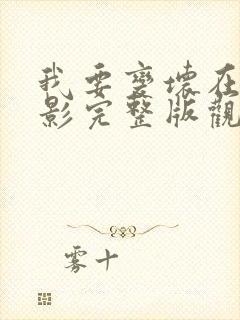 我要變壞在
影完整版觀
雾十